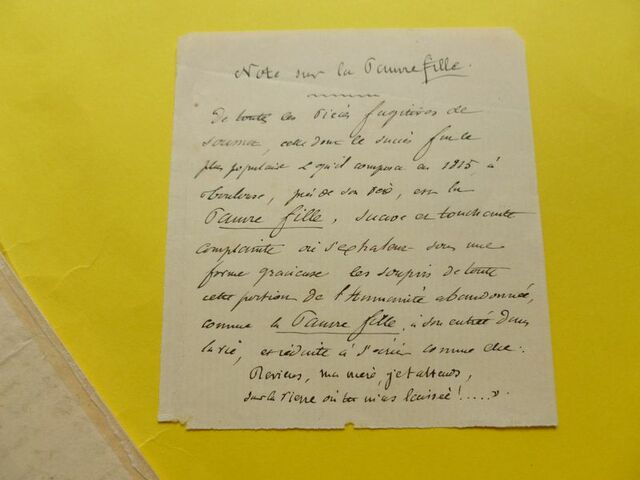 Note sur la Pauvre fille.
De toutes les Pièces fugitives de
Soumet, celle dont le succès fut le
plus populaire & qu'il composa en 1815, à
Toulouse, près de son Père, est la
Pauvre fille, suave et touchante
complainte où s'exhalent sous une
forme gracieuse les soupirs de toute
cette portion de l'Humanité abandonnée,
comme la Pauvre fille, à son entrée dans
la vie, et réduite à s'écrier comme elle :
Reviens, ma mère, je t'attends,
sur la Pierre où tu m'as laissée !.....».